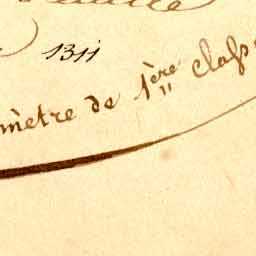 1311
mètre de 1ère Class